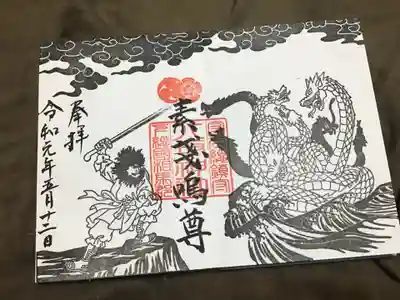 素戔嗚尊
奉拝
令和元年五月十二日